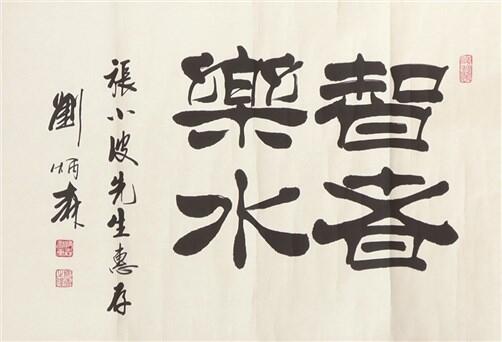 智者
樂水
張小波先生惠存
劉炳森